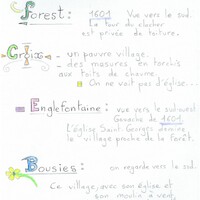 Forest: 1601 Vue vers le sud.
La tour du clocher
est privée de toiture.
Croix: - un pauvre village.
- des masures en torchis
aux toits de chaume.
- On ne voit pas d'église...
Englefontaine: vue vers le sud-ouest
Gouache de 1601
L'église Saint Georges domine
le village proche de la forêt.
Bousies: on regarde vers le sud.
Ce village, avec son église et
son moulin à vent,